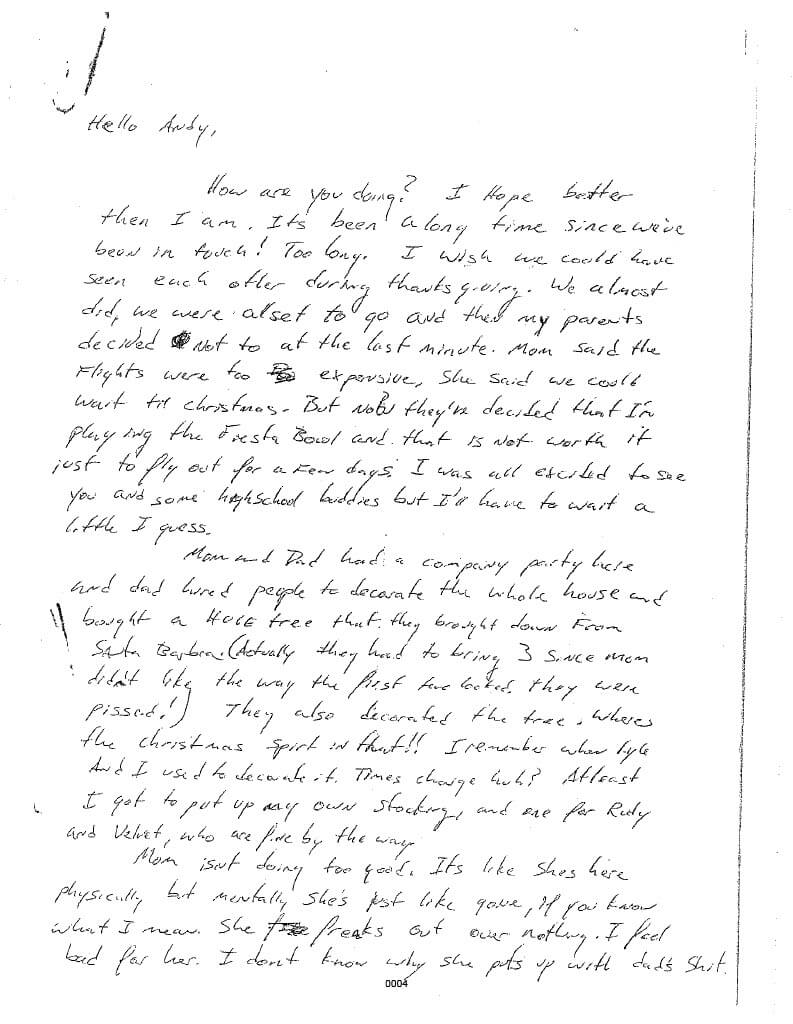 Hello Andy,
How are you doing? I Hope better
then I am. Its been a long time since we've
been in touch! Too long. I wish we could have
seen each other during thanksgiving. We almost
did, we were alset to go and then my parents
decided not to at the last minute. Mom said the
Flights were too expensive, She said we could
wait til christmas. But now they've decided that I'm
playing the Fiesta Bowl and that is not worth it
just to fly out for a few days. I was all excited to see
you and some highschool buddies but I'll have to wait a
little I guess.
Mom and Dad had a company party here
and dad hired people to decorate the whole house and
bought a HUGE tree that they brought down From
Santa Barbra. (Actually they had to bring 3 since mom
didn't like the way the first two looked, they were
pissed!) They also decorated the tree. Wheres
the christmas spirt in that!! I remember when Lyle
And I used to decorate it. Times change huh? Atleast
I got to put up my own stocking, and one for Rudy
and Velvet, who are fine by the way
Mom isnt doing too good. Its like Shes here
physically but mentally she's just like gone, if you know
what I mean. She freaks out over nothing. I feel
bad for her. I don't know why she puts up with dad's shit.
0004